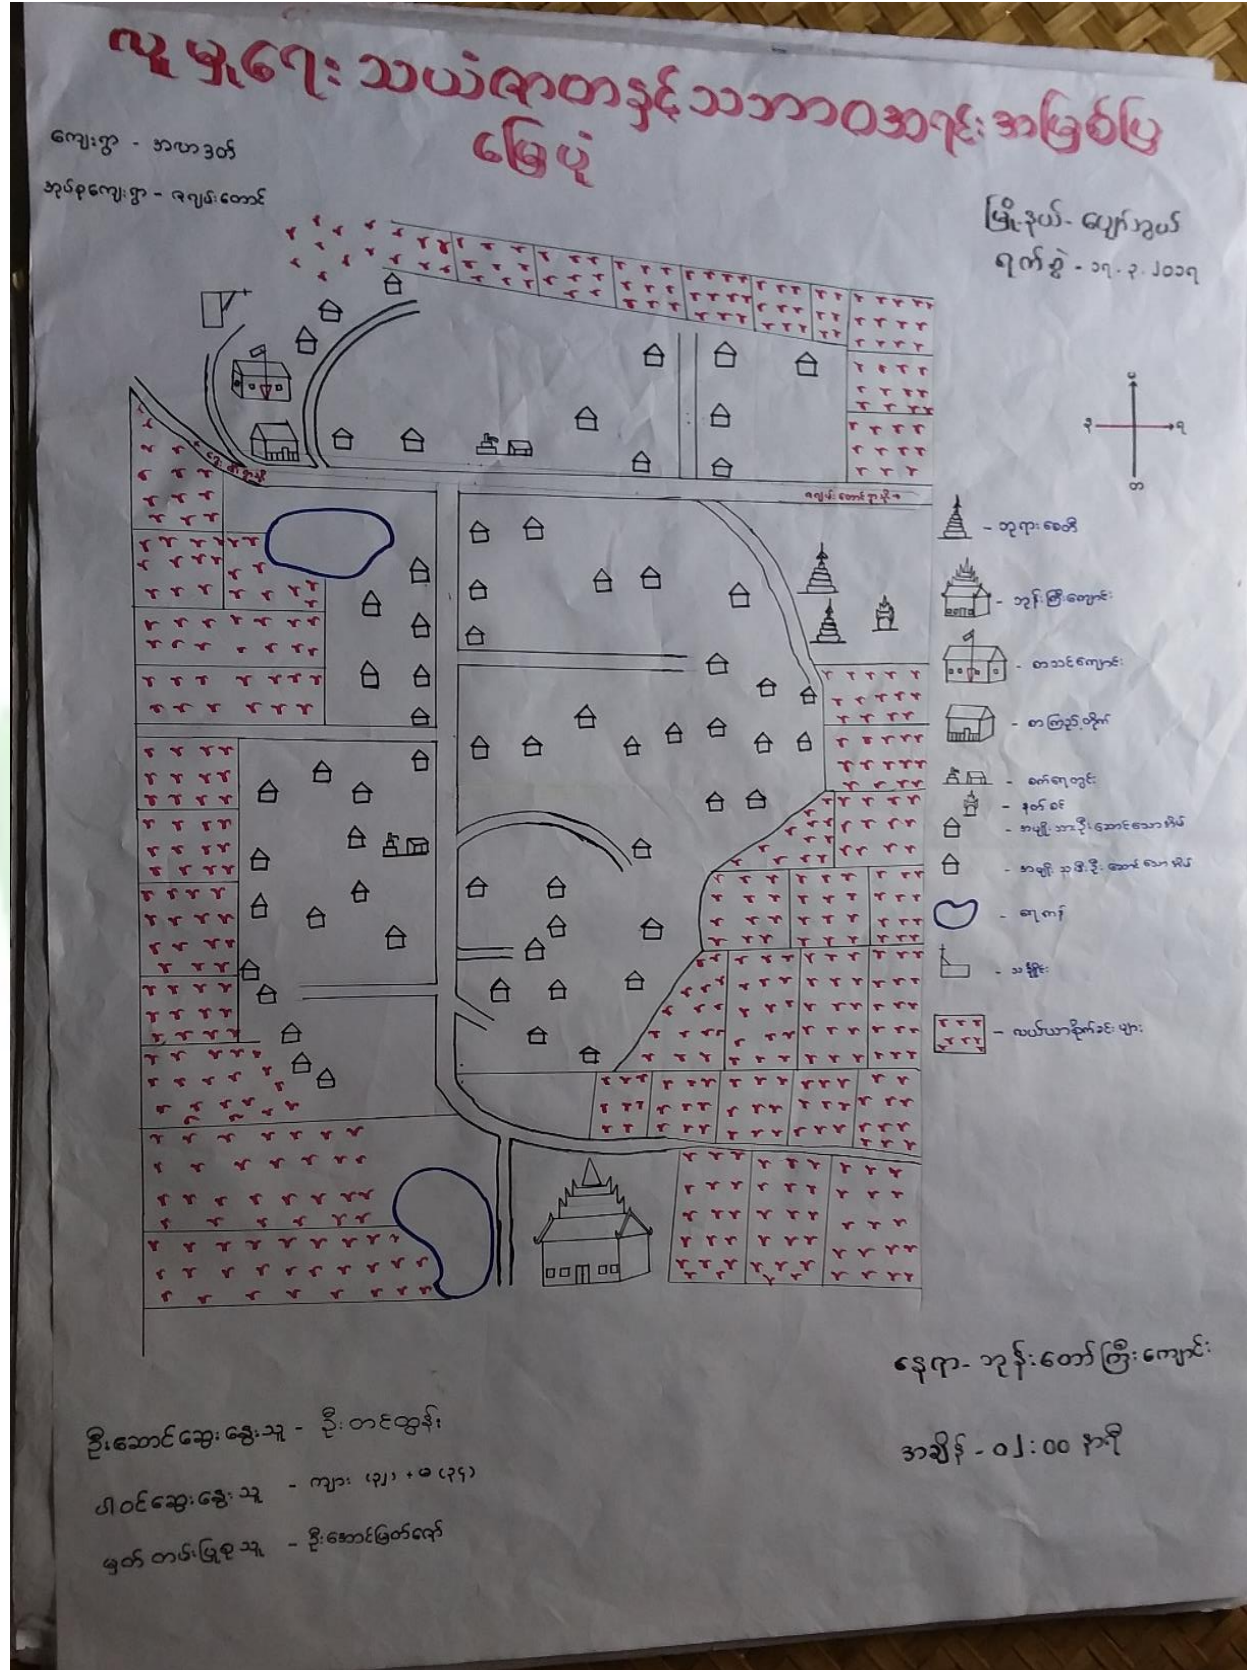 လူမှုရေး သယံဇာတနှင့် သဘာဝအရင်းအမြစ်ပြ
မြေပုံ
ကျေးရွာ - အလာဒတ်
အုပ်စုကျေးရွာ - ဇရပ်တောင်
မြို့နယ် - ပျော်ဘွယ်
ရက်စွဲ - ၁၇.၃.၂၀၁၇
- ဘုရားစေတီ
- ဘုန်းကြီးကျောင်း
- စာသင်ကျောင်း
- စာကြည့်တိုက်
- စက်ရေတွင်း
- နတ်စင်
- အမျိုးသားဦးဆောင်သောအိမ်
- အမျိုးသမီးဦးဆောင်သောအိမ်
- ရေကန်
- သင်္ချိုင်း
- လယ်ယာစိုက်ခင်းများ
နေရာ - ဘုန်းတော်ကြီးကျောင်း
အချိန် - ၀၂:၀၀ နာရီ
ဦးဆောင်ဆွေးနွေးသူ - ဦးတင်ထွန်း
ပါဝင်ဆွေးနွေးသူ - ကျား (၃၂) + မ (၃၄)
မှတ်တမ်းပြုစုသူ - ဦးအောင်မြတ်ဇော်